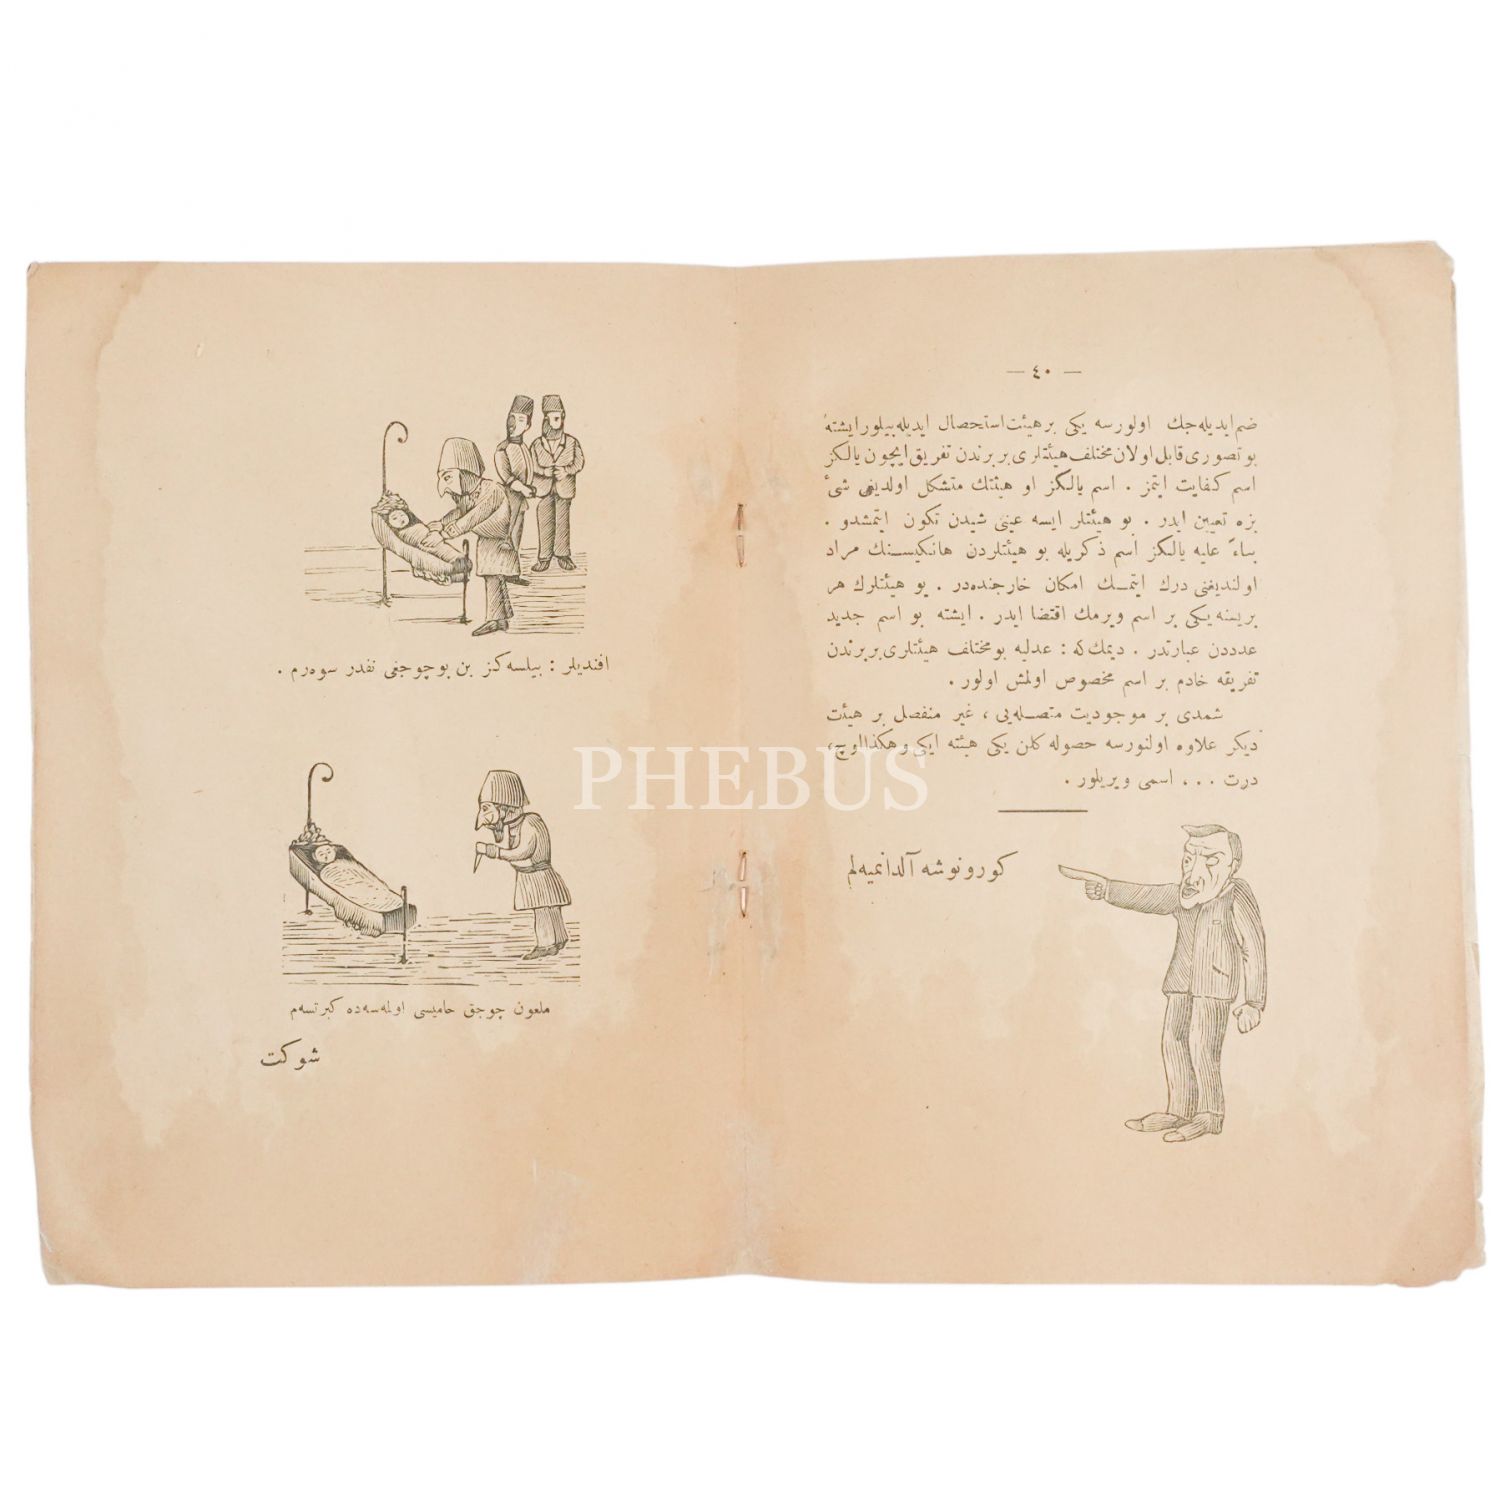 — ٤٠ —
ضم ایدیله‌جك اولورسه یكی بر هیئت استحصال ایدیله بیلور ایشته
بو تصوری قابل اولان مختلف هیئتلری بربرندن تفریق ایچون یالكز
اسم كفایت ایتمز . اسم یالكز او هیئتك متشكل اولدیغی شیٔ
بزه تعیین ایدر . بو هیئتلر ایسه عینی شیدن تكون ایتمشدو .
بناءً علیه یالكز اسم ذكریله بو هیئتلردن هانكیسنك مراد
اولندیغنی درك ایتمك امكان خارجنده‌در . بو هیئتلرك هر
برینه یكی بر اسم ویرمك اقتضا ایدر . ایشته بو اسم جدید
عدددن عبارتدر . دیمك كه : عدلیه بو مختلف هیئتلری بربرندن
تفریقه خادم بر اسم مخصوص اولمش اولور .
شمدی بر موجودیت متصله‌یی ، غیر منفصل بر هیئت
دیكر علاوه اولنورسه حصوله كلن یكی هیئته ایكی وهكذا اوچ،
درت . . . اسمی ویریلور .
كورونوشه آلدانمیه‌لم
افندیلر : بیلسه‌كز بن بو چوجغی نقدر سوه‌رم .
ملعون چوجق حامیسی اولمه‌سه‌ده كبرتسه‌م
شوكت
PHEBUS